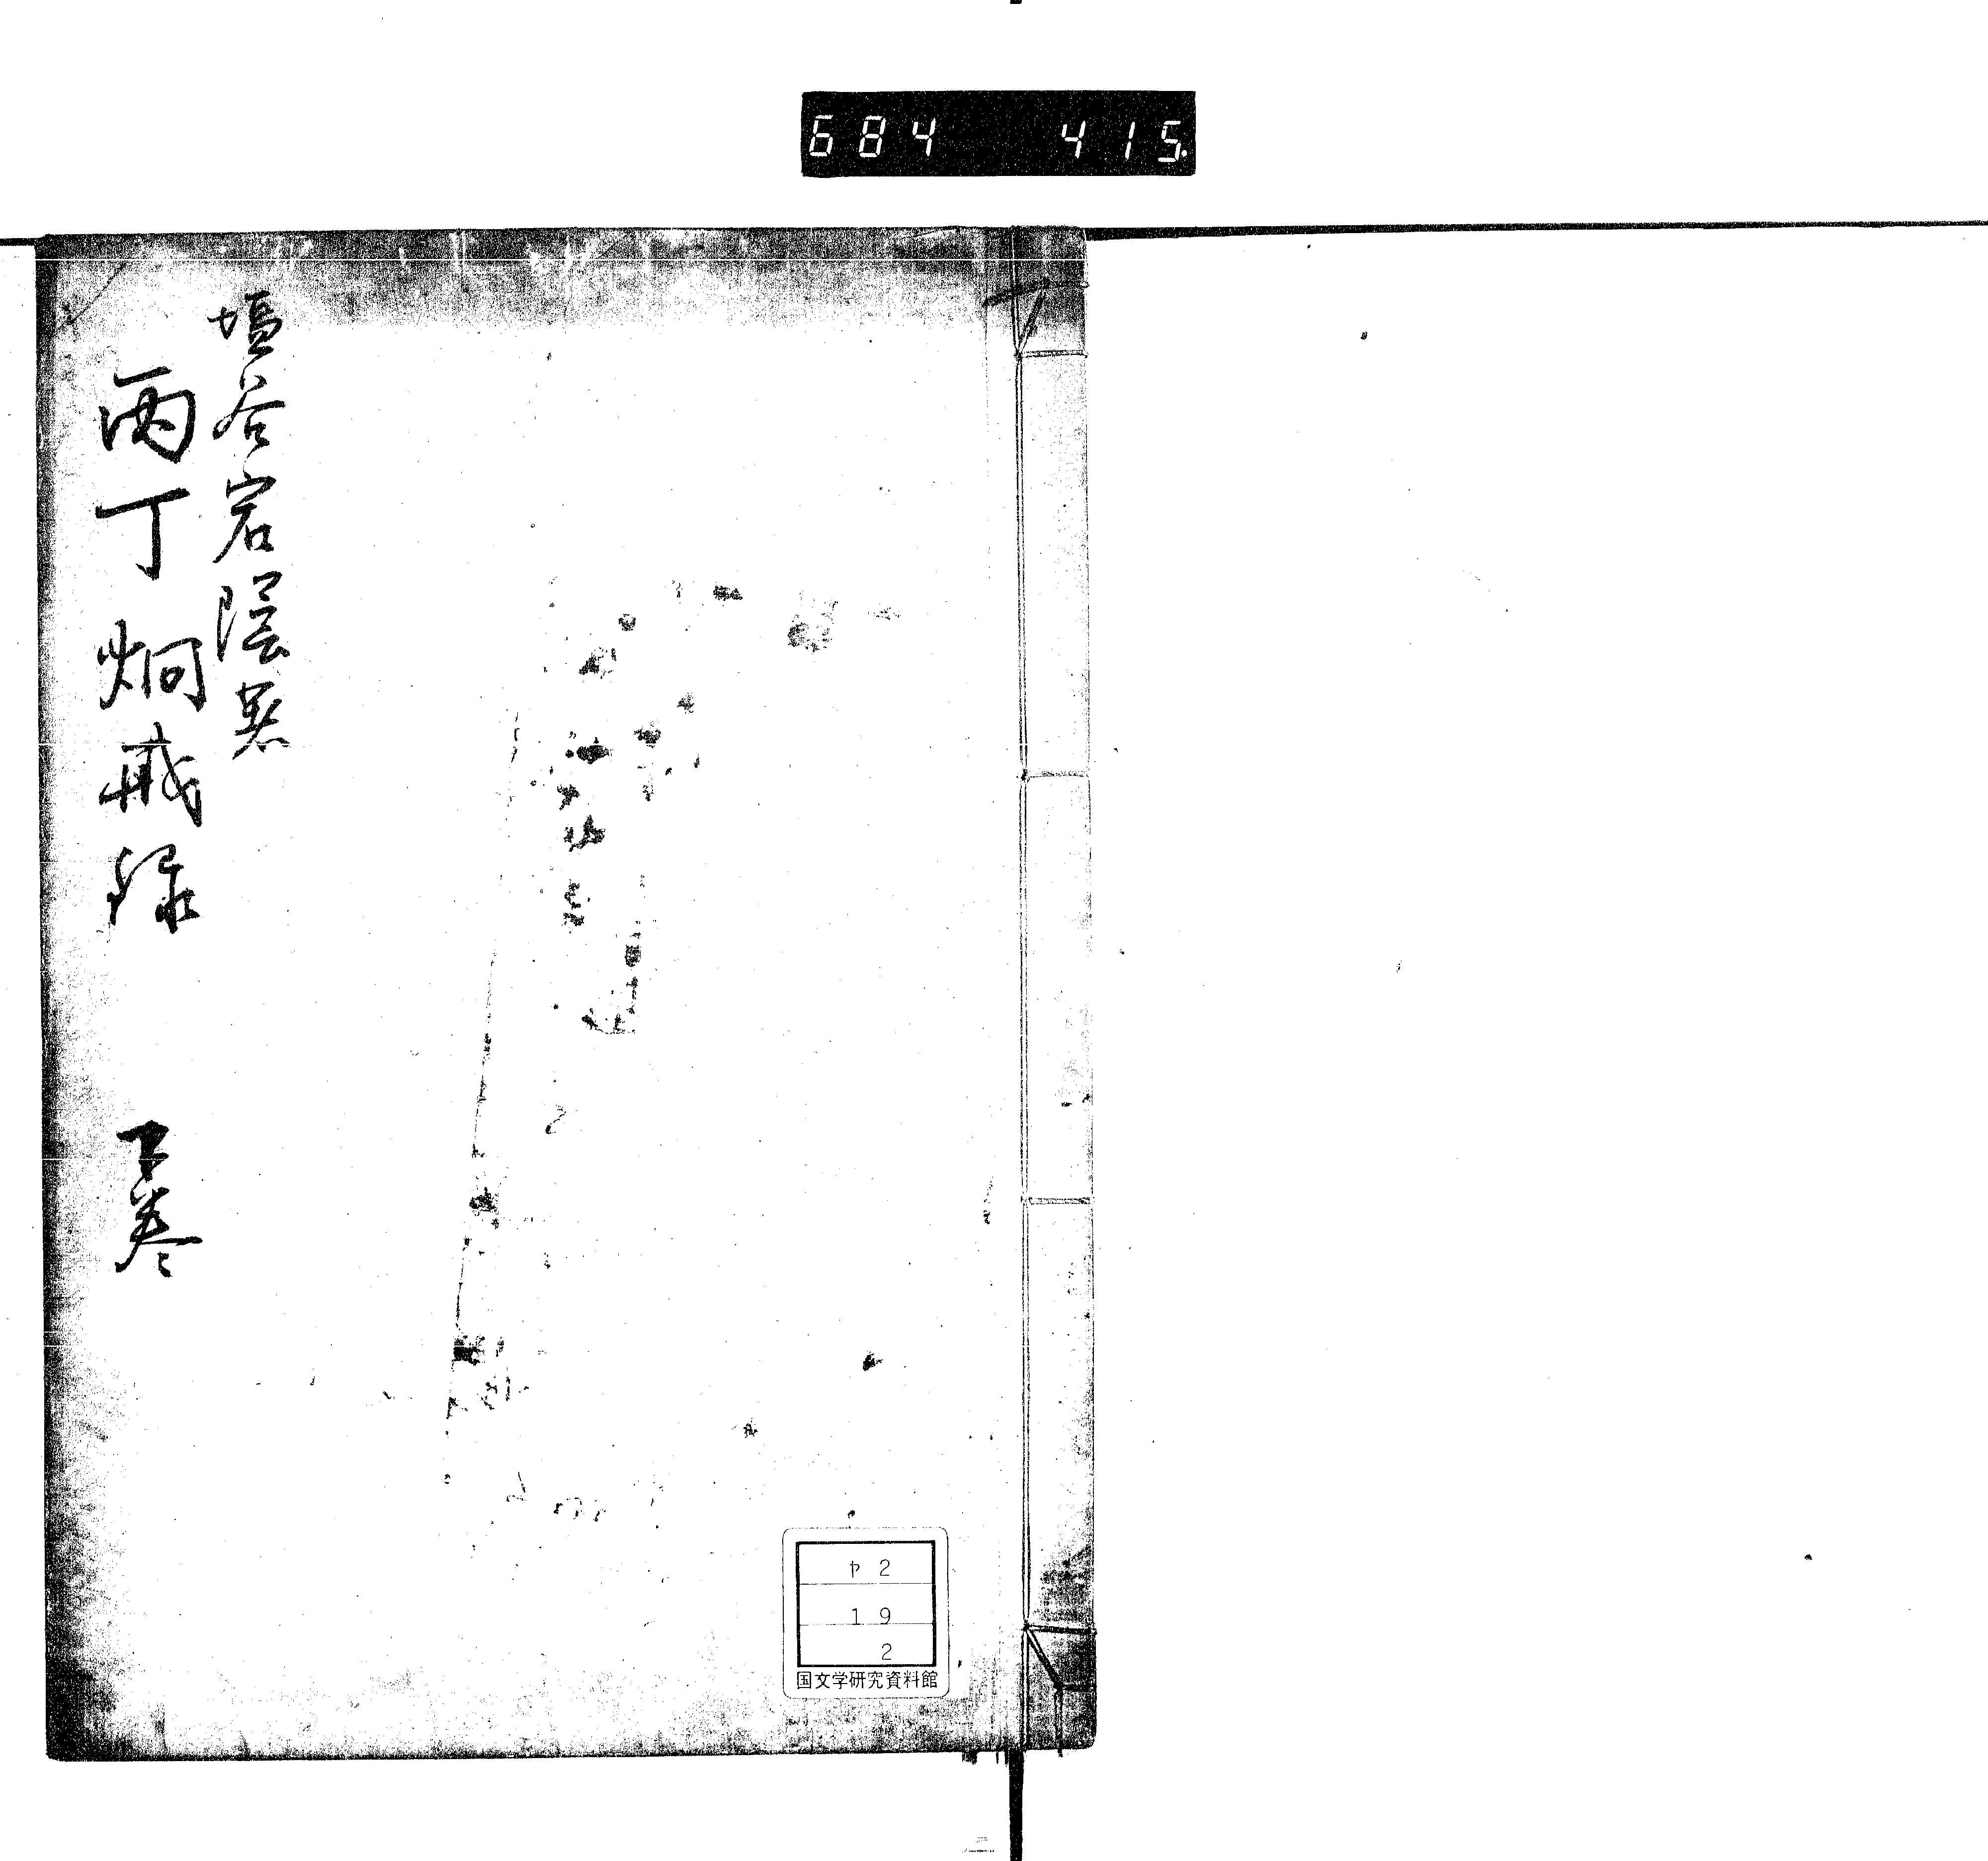 684 415.
塩谷宕陰著
丙丁烱戒録 下巻
ヤ2
19
2
国文学研究資料館